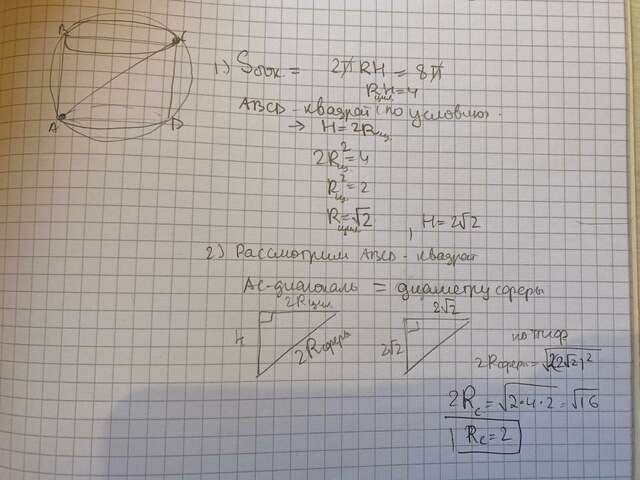 B C
A D
1) Sбок = 2πRH = 8π
Rцил H=4
ABCD - квадрат (по условию)
→ H=2Rц
2Rц²=4
Rц²=2
Rцил=√2 , H=2√2
2) Рассмотрим ABCD - квадрат
AC-диагональ = диаметру сферы
2Rцил
H
2Rсферы
2√2
2√2
по т.Пиф
2Rсферы=
2Rc=√2·4·2=√16
Rc=2